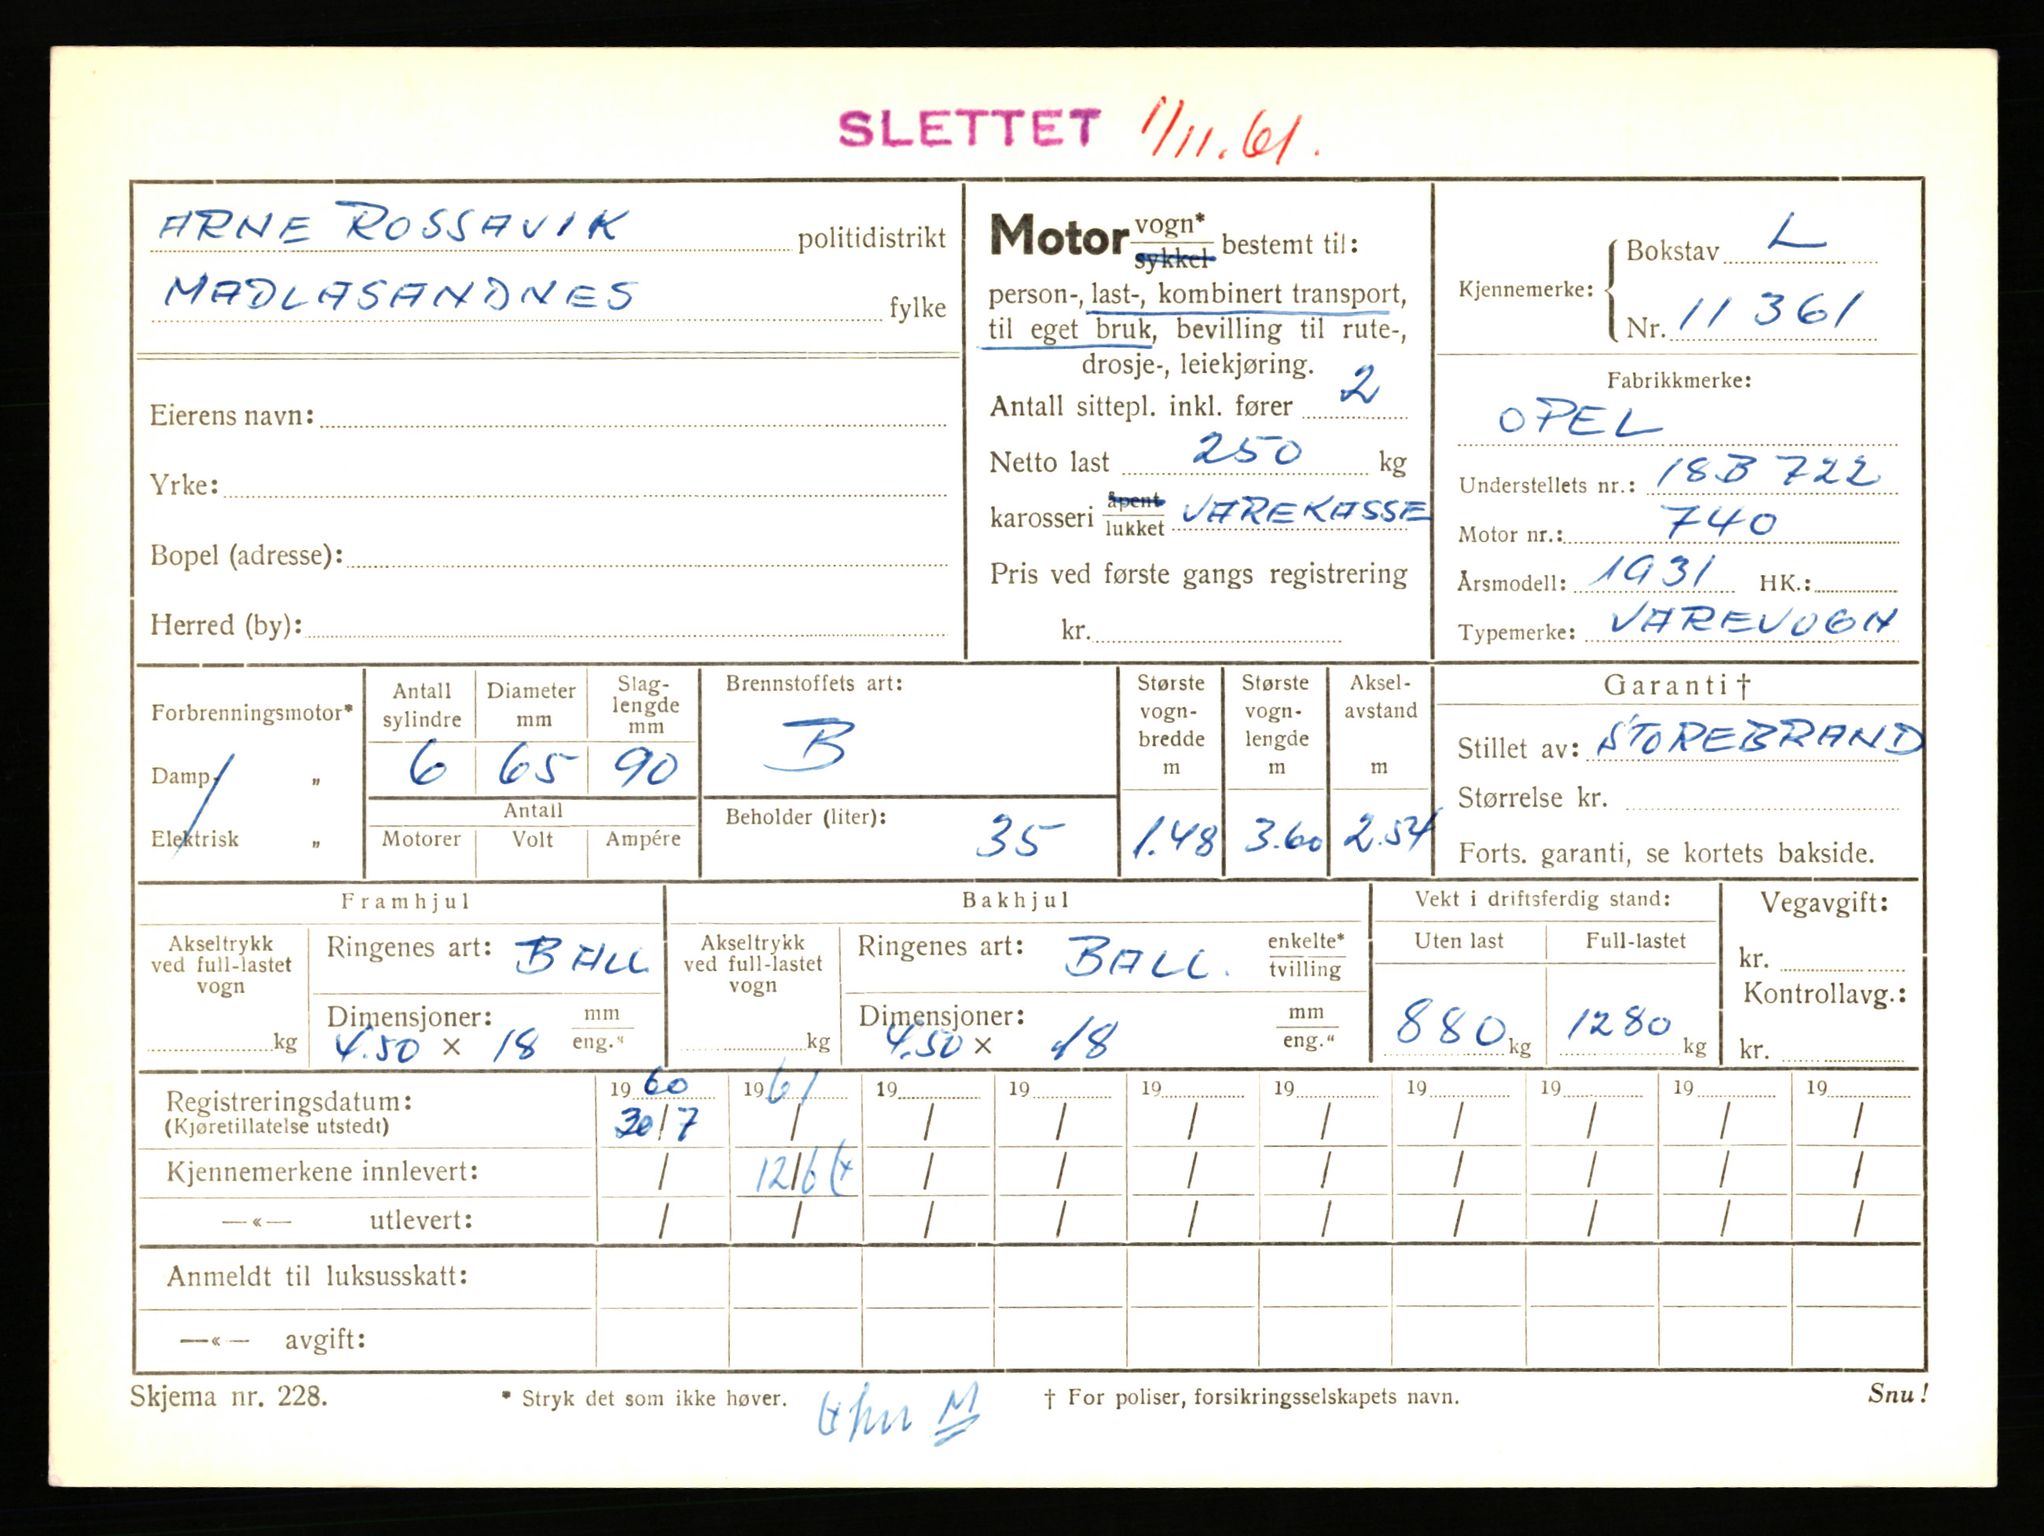 SLETTET 1/11.61.
ARNE ROSSAVIK politidistrikt
MADLASANDNES fylke
Eierens navn:
Yrke:
Bopel (adresse):
Herred (by):
Motor vogn* sykkel bestemt til:
person-, last-, kombinert transport,
til eget bruk, bevilling til rute-,
drosje-, leiekjøring.
Antall sittepl. inkl. fører 2
Netto last 250 kg
karosseri åpent lukket VAREKASSE
Pris ved første gangs registrering
kr.
Kjennemerke: Bokstav L
Nr. 11361
Fabrikkmerke:
OPEL
Understellets nr.: 18B 722
Motor nr.: 740
Årsmodell: 1931 HK.:
Typemerke: VAREVOGN
Forbrenningsmotor*
Damp- „
Elektrisk „
Antall sylindre 6
Diameter mm 65
Slag-lengde mm 90
Antall
Motorer Volt Ampére
Brennstoffets art:
B
Beholder (liter): 35
Største vogn-bredde m 1.48
Største vogn-lengde m 3.60
Aksel-avstand m 2.54
Garanti †
Stillet av: STOREBRAND
Størrelse kr.
Forts. garanti, se kortets bakside.
Framhjul
Akseltrykk ved full-lastet vogn
kg
Ringenes art: BALL
Dimensjoner: mm
4.50 × 18 eng."
Bakhjul
Akseltrykk ved full-lastet vogn
kg
Ringenes art: BALL. enkelte* tvilling
Dimensjoner: mm
4.50 × 18 eng."
Vekt i driftsferdig stand:
Uten last Full-lastet
880 kg 1280 kg
Vegavgift:
kr.
Kontrollavg.:
kr.
Registreringsdatum: 1960 1961 19 19 19 19 19 19 19 19
(Kjøretillatelse utstedt) 30/7 / / / / / / / / /
Kjennemerkene innlevert: / 12/6 / / / / / / / /
—«— utlevert: / / / / / / / / / /
Anmeldt til luksusskatt:
—«— avgift:
Skjema nr. 228. * Stryk det som ikke høver. † For poliser, forsikringsselskapets navn. Snu!
M